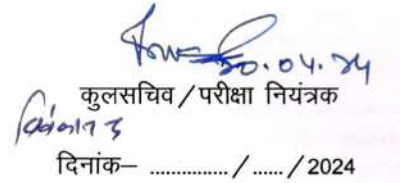 30.04.24
कुलसचिव / परीक्षा नियंत्रक
दिनांक– ............... / ...... / 2024